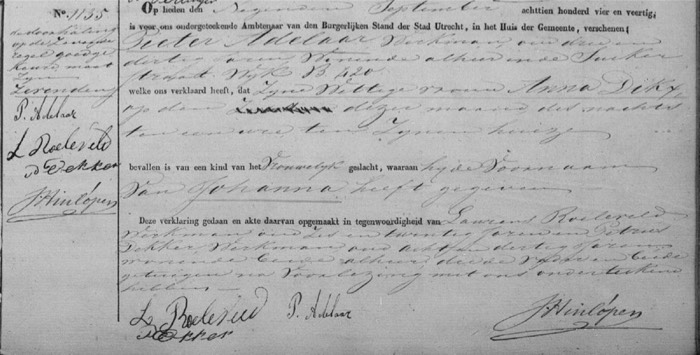 No. 1135
de doorhaling
op de zevende
regel goedge
keurd met
Zyn
Zevenden
P. Adelaar
L Roeleveld
P Dekker
JHinlópen
Op heden den Negenden September achttien honderd vier en veertig,
is voor ons ondergeteekende Ambtenaar van den Burgerlijken Stand der Stad Utrecht, in het Huis der Gemeente, verschenen;
Pieter Adelaar Werkman oud drie en
dertig jaren Wonende alhier in de Suiker
straat Wyk B 420
welke ons verklaard heeft, dat Zyne Wettige vrouw Anna Dikx
op de dezer maand des nachts
ten een ure ten Zynen huize
bevallen is van een kind van het Vrouwelyk geslacht, waaraan hy de Voornaam
Van Johanna heeft gegeven
Deze verklaring gedaan en akte daarvan opgemaakt in tegenwoordigheid van Laurens Roeleveld
Werkman oud Zes en twintig jaren en Petrus
Dekker Werkman oud acht en dertig jaren
wonende beide alhier die de Vader en beide
getuigen na Voorlezing met ons onderteekend
hebben
L Roeleveld
P. Adelaar
P Dekker
JHinlópen